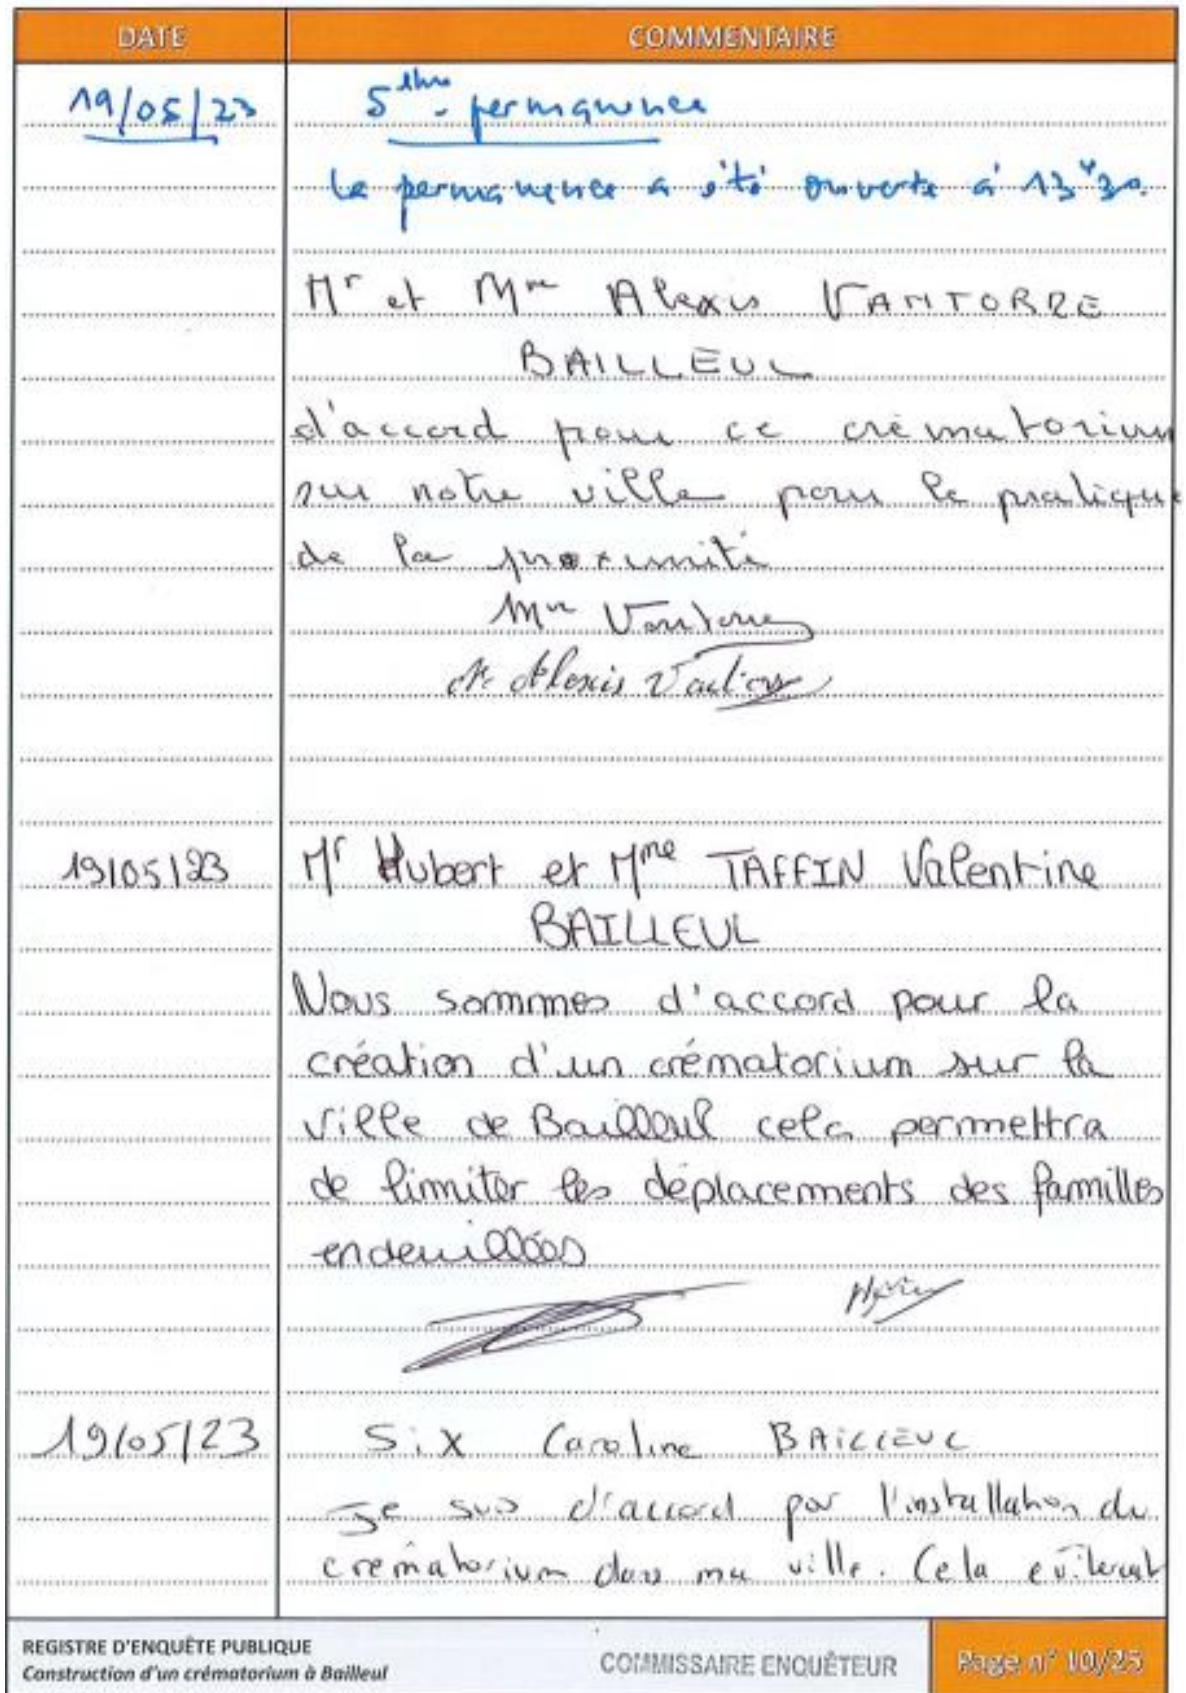 DATE COMMENTAIRE
19/05/23 5ème permanence
La permanence a été ouverte à 13h30.
Mr et Mme Alexis VANTORRE
BAILLEUL
d'accord pour ce crématorium
sur notre ville pour le pratique
de la proximité
Mme Vantorre
Mr Alexis Vantorre
19/05/23 Mr Hubert et Mme TAFFIN Valentine
BAILLEUL
Nous sommes d'accord pour la
création d'un crématorium sur la
ville de Bailleul cela permettra
de limiter les déplacements des familles
endeuillées
19/05/23 Six Caroline BAILLEUL
Je suis d'accord par l'installation du
crématorium dans ma ville. Cela eviterait
REGISTRE D'ENQUÊTE PUBLIQUE
Construction d'un crématorium à Bailleul
COMMISSAIRE ENQUÊTEUR
Page n° 10/25